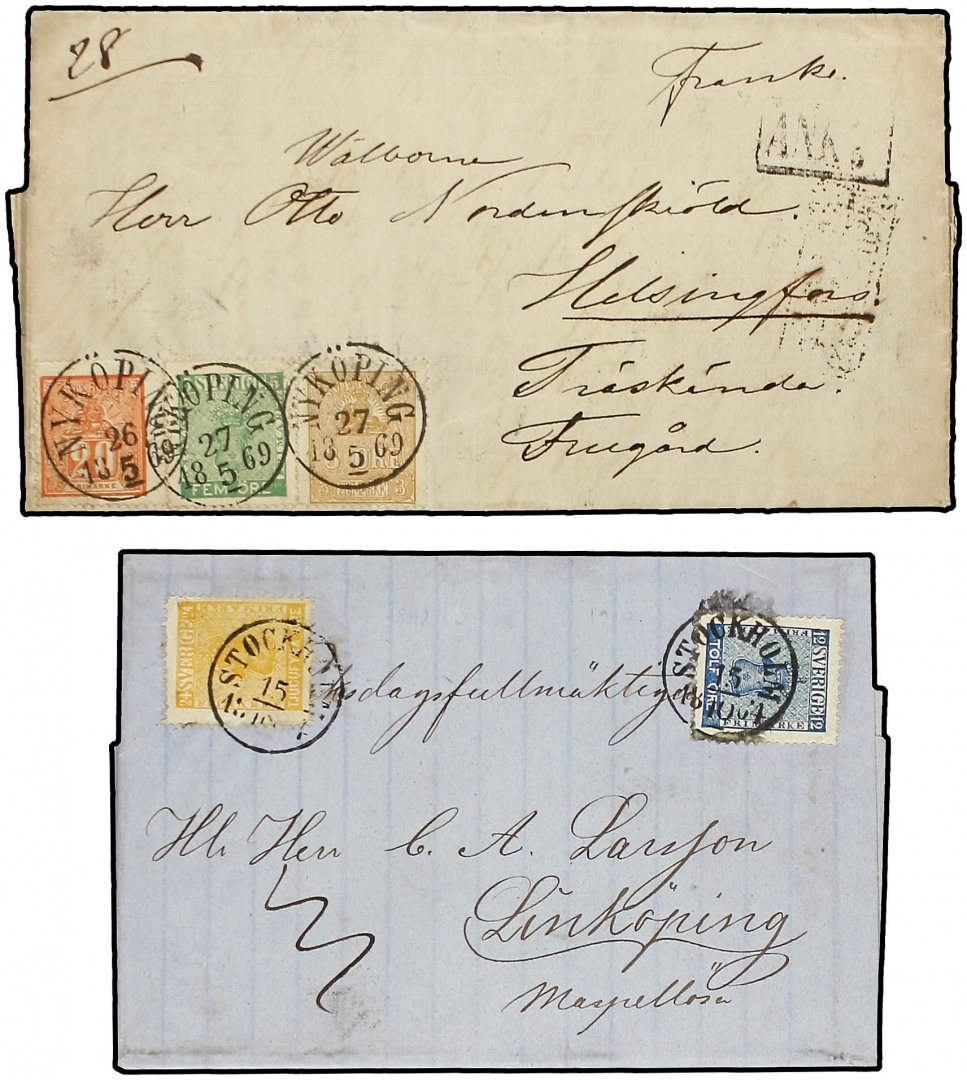 28
Franko.
ANK
Wälborne
Herr Otto Nordenskiöld.
Helsingfors.
Träskända.
Frugård.
NYKÖPING
26
18 5 69
20
FRIMÄRKE
NYKÖPING
27
18 5 69
FEM ÖRE
NYKÖPING
27
18 5 69
3 ÖRE
3 3
24 SVERIGE 24
STOCKHOLM
15
Riksdagsfullmäktigen
STOCKHOLM
15
18 10 64
12 SVERIGE 12
TOLF ÖRE
FRIMÄRKE
Hr Herr C. A. Larsson
Linköping